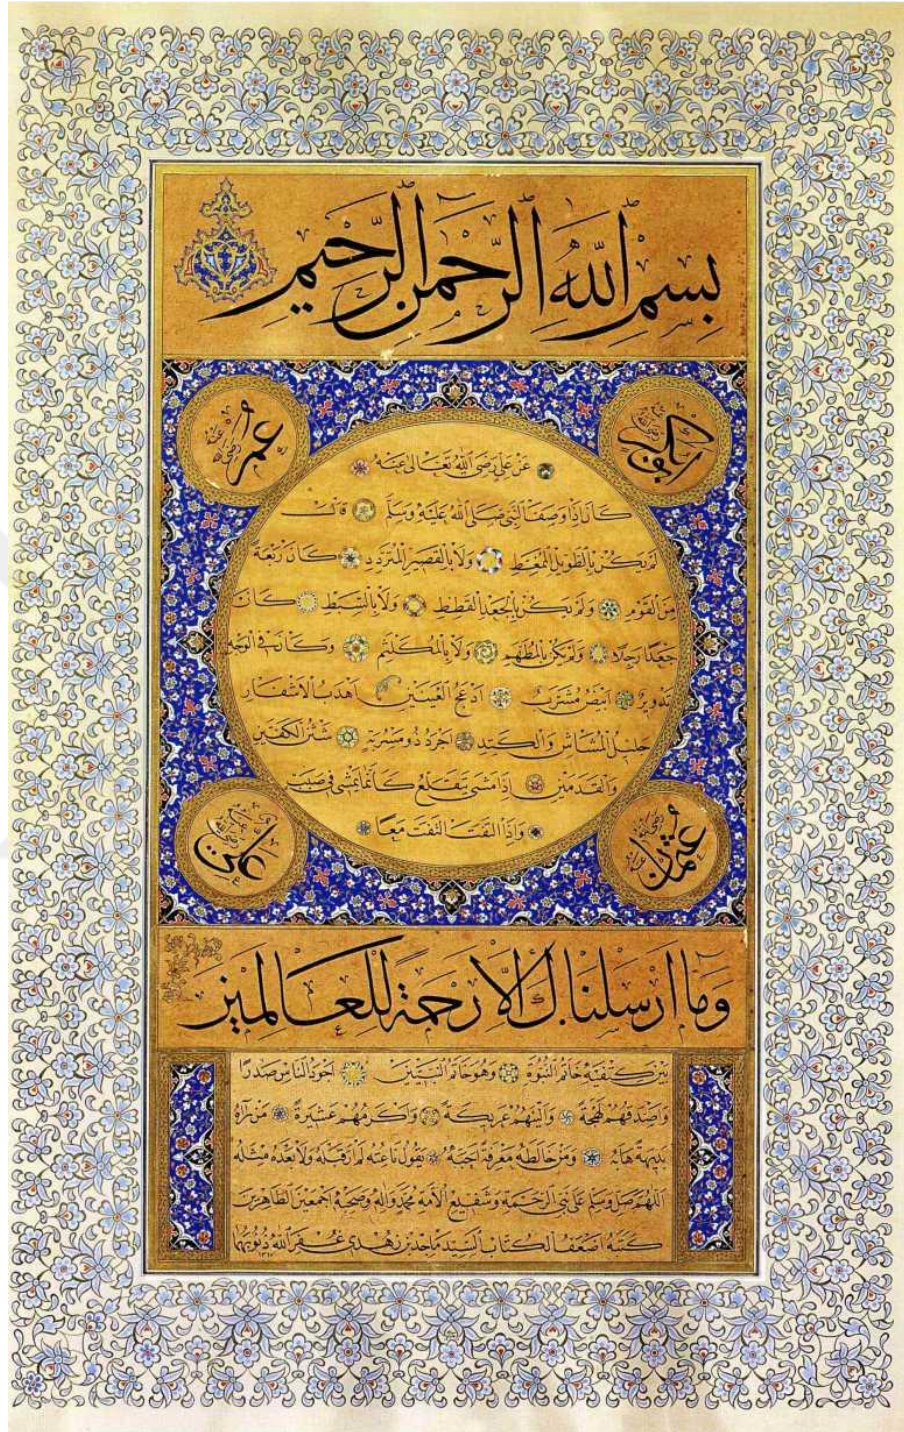 بسم الله الرحمن الرحيم
ابوبكر رضي الله عنه
عمر رضي الله عنه
عن علي رضي الله تعالى عنه
كان اذا وصف النبي صلى الله عليه وسلم قال
لم يكن بالطويل الممغط ولا بالقصير المتردد كان ربعة
من القوم ولم يكن بالجعد القطط ولا بالسبط كان
جعدا رجلا ولم يكن بالمطهم ولا بالمكلثم وكان في الوجه
تدوير ابيض مشرب ادعج العينين اهدب الاشفار
جليل المشاش والكتد اجرد ذو مسربة شثن الكفين
والقدمين اذا مشى يتقلع كانما يمشي في صبب
واذا التفت التفت معا
عثمان رضي الله عنه
علي رضي الله عنه
وما ارسلناك الا رحمة للعالمين
بين كتفيه خاتم النبوة وهو خاتم النبيين اجود الناس صدرا
واصدقهم لهجة والينهم عريكة واكرمهم عشيرة من رآه
بديهة هابه ومن خالطه معرفة احبه يقول ناعته لم ار قبله ولا بعده مثله
اللهم صل وسلم على نبي الرحمة وشفيع الامة محمد وآله وصحبه اجمعين الطاهرين
كتبه اضعف الكتاب السيد ماجد بن زهدي غفر الله ذنوبهما